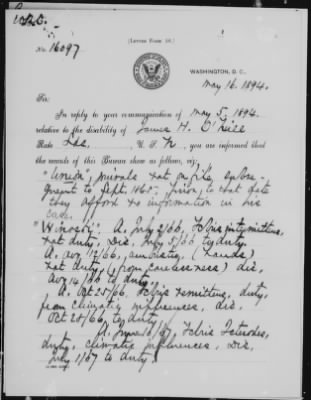 (Letter Form 18.)
No. 16097
WASHINGTON, D. C.,
May 16, 1894.
Sir:
In reply to your communication of May 5, 1894.
relative to the disability of James H. O'Neill
Rate Lds., U. S. N., you are informed that
the records of this Bureau show as follows, viz:
"Union", journals not on file, subse-
quent to Sept. 1865. prior to that date
they afford no information in his
case.
"Winooski". A. July 2/66, Febris intermittens,
not duty, Dis. July 5/66 to duty.
A. Nov 12/66, ambustio, (hands)
not duty, (from carelessness) dis.
Nov 14/66 to duty.
A. Oct 25/66, Febris remittens, duty,
from climatic influences, dis.
Oct 28/66, to duty.
A. June 16/67, Febris Icterodes,
duty, climatic influences, Dis.
July 1/67 to duty.